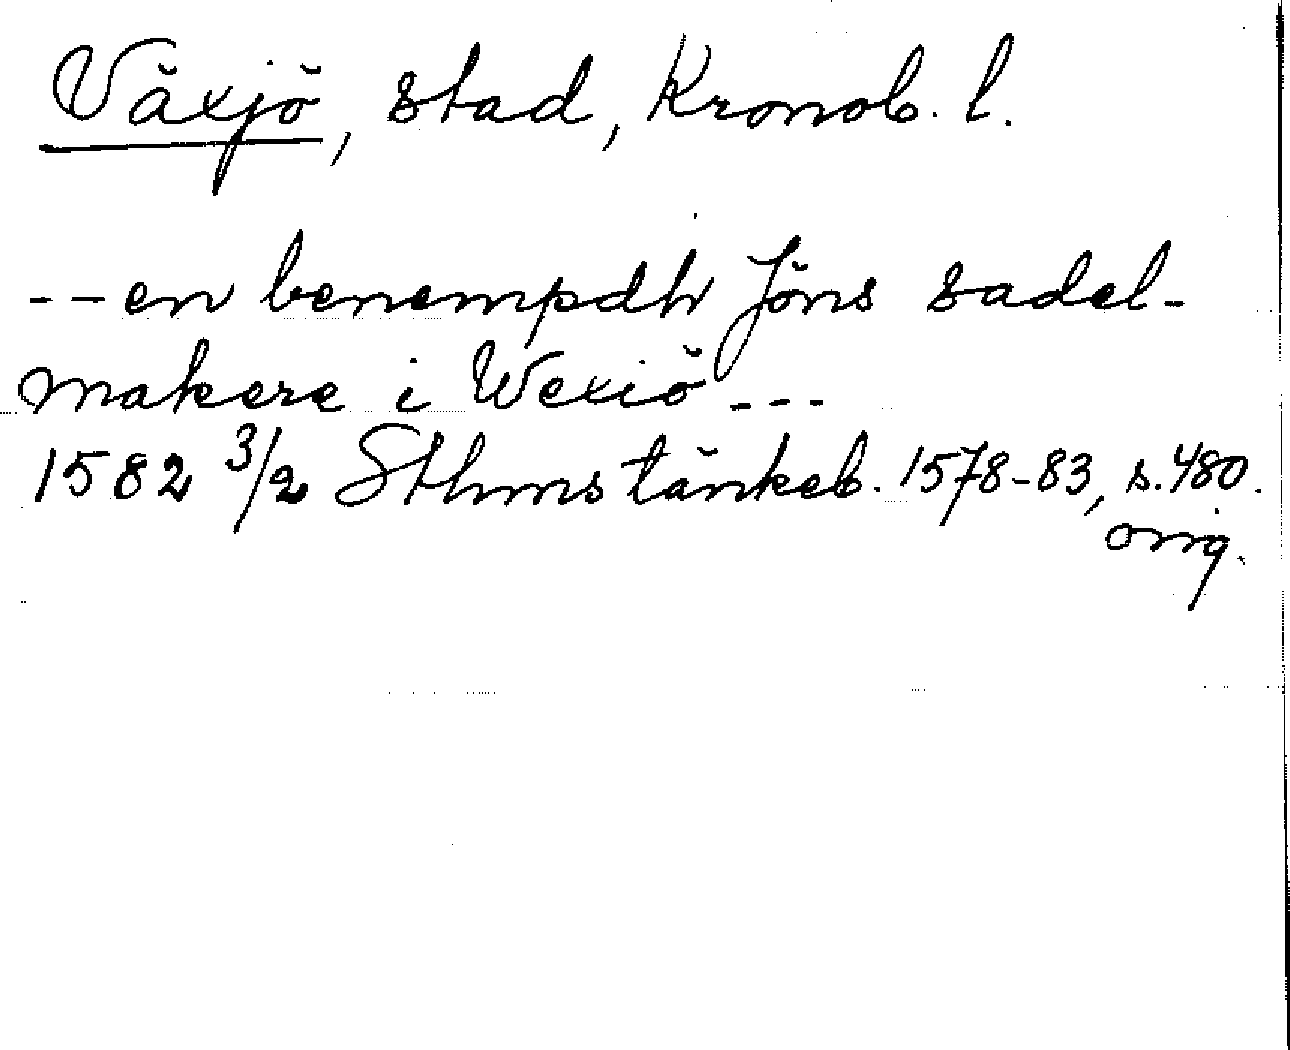 Växjö, stad, Kronob. l.
--en benempdh Jöns sadel-
makere i Wexiö---
1582 3/2 Sthms tänkeb. 1578-83, s. 480.
orig.